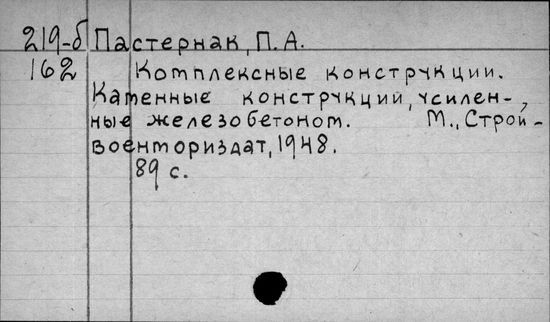 219-б Пастернак, П. А.
162 Комплексные конструкции.
Каменные конструкции, усилен-
ные железобетоном. М., Строй-
военмориздат, 1948.
89 с.